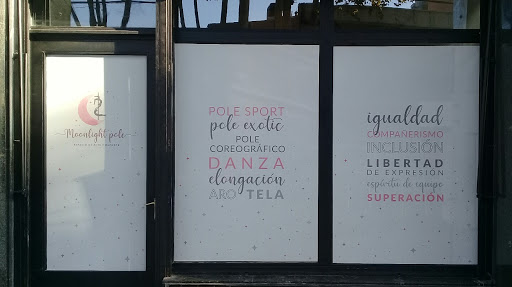 Moonlight pole
POLE SPORT
pole exotic
POLE
COREOGRÁFICO
DANZA
elongación
ARO TELA
igualdad
COMPAÑERISMO
INCLUSIÓN
LIBERTAD
DE EXPRESIÓN
espíritu de equipo
SUPERACIÓN